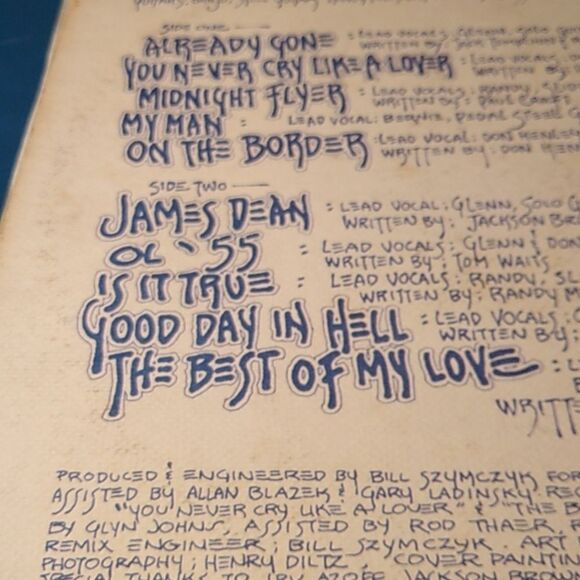 SIDE ONE
ALREADY GONE : LEAD VOCALS: GLENN, SOLO
WRITTEN BY: JACK
YOU NEVER CRY LIKE A LOVER : LEAD VOCALS:
WRITTEN BY:
MIDNIGHT FLYER : LEAD VOCALS: RANDY, SLIDE
WRITTEN BY: PAUL CRAFT
MY MAN : LEAD VOCAL: BERNIE, PEDAL STEEL
ON THE BORDER : LEAD VOCAL: DON HENLEY
WRITTEN BY: DON HENL
SIDE TWO
JAMES DEAN : LEAD VOCAL: GLENN, SOLO G
WRITTEN BY: JACKSON BR
OL '55 : LEAD VOCALS: GLENN & DON
WRITTEN BY: TOM WAITS
IS IT TRUE : LEAD VOCALS: RANDY, SL
WRITTEN BY: RANDY M
GOOD DAY IN HELL : LEAD VOCALS: G
WRITTEN BY:
THE BEST OF MY LOVE : L
WRITTE
PRODUCED & ENGINEERED BY BILL SZYMCZYK FOR
ASSISTED BY ALLAN BLAZEK & GARY LADINSKY. REC
"YOU NEVER CRY LIKE A LOVER" & "THE B
BY GLYN JOHNS, ASSISTED BY ROD THAER,
REMIX ENGINEER; BILL SZYMCZYK. ART
PHOTOGRAPHY; HENRY DILTZ, COVER PAINTIN
SPECIAL THANKS TO IRV AZOFF, JACKSON BROW